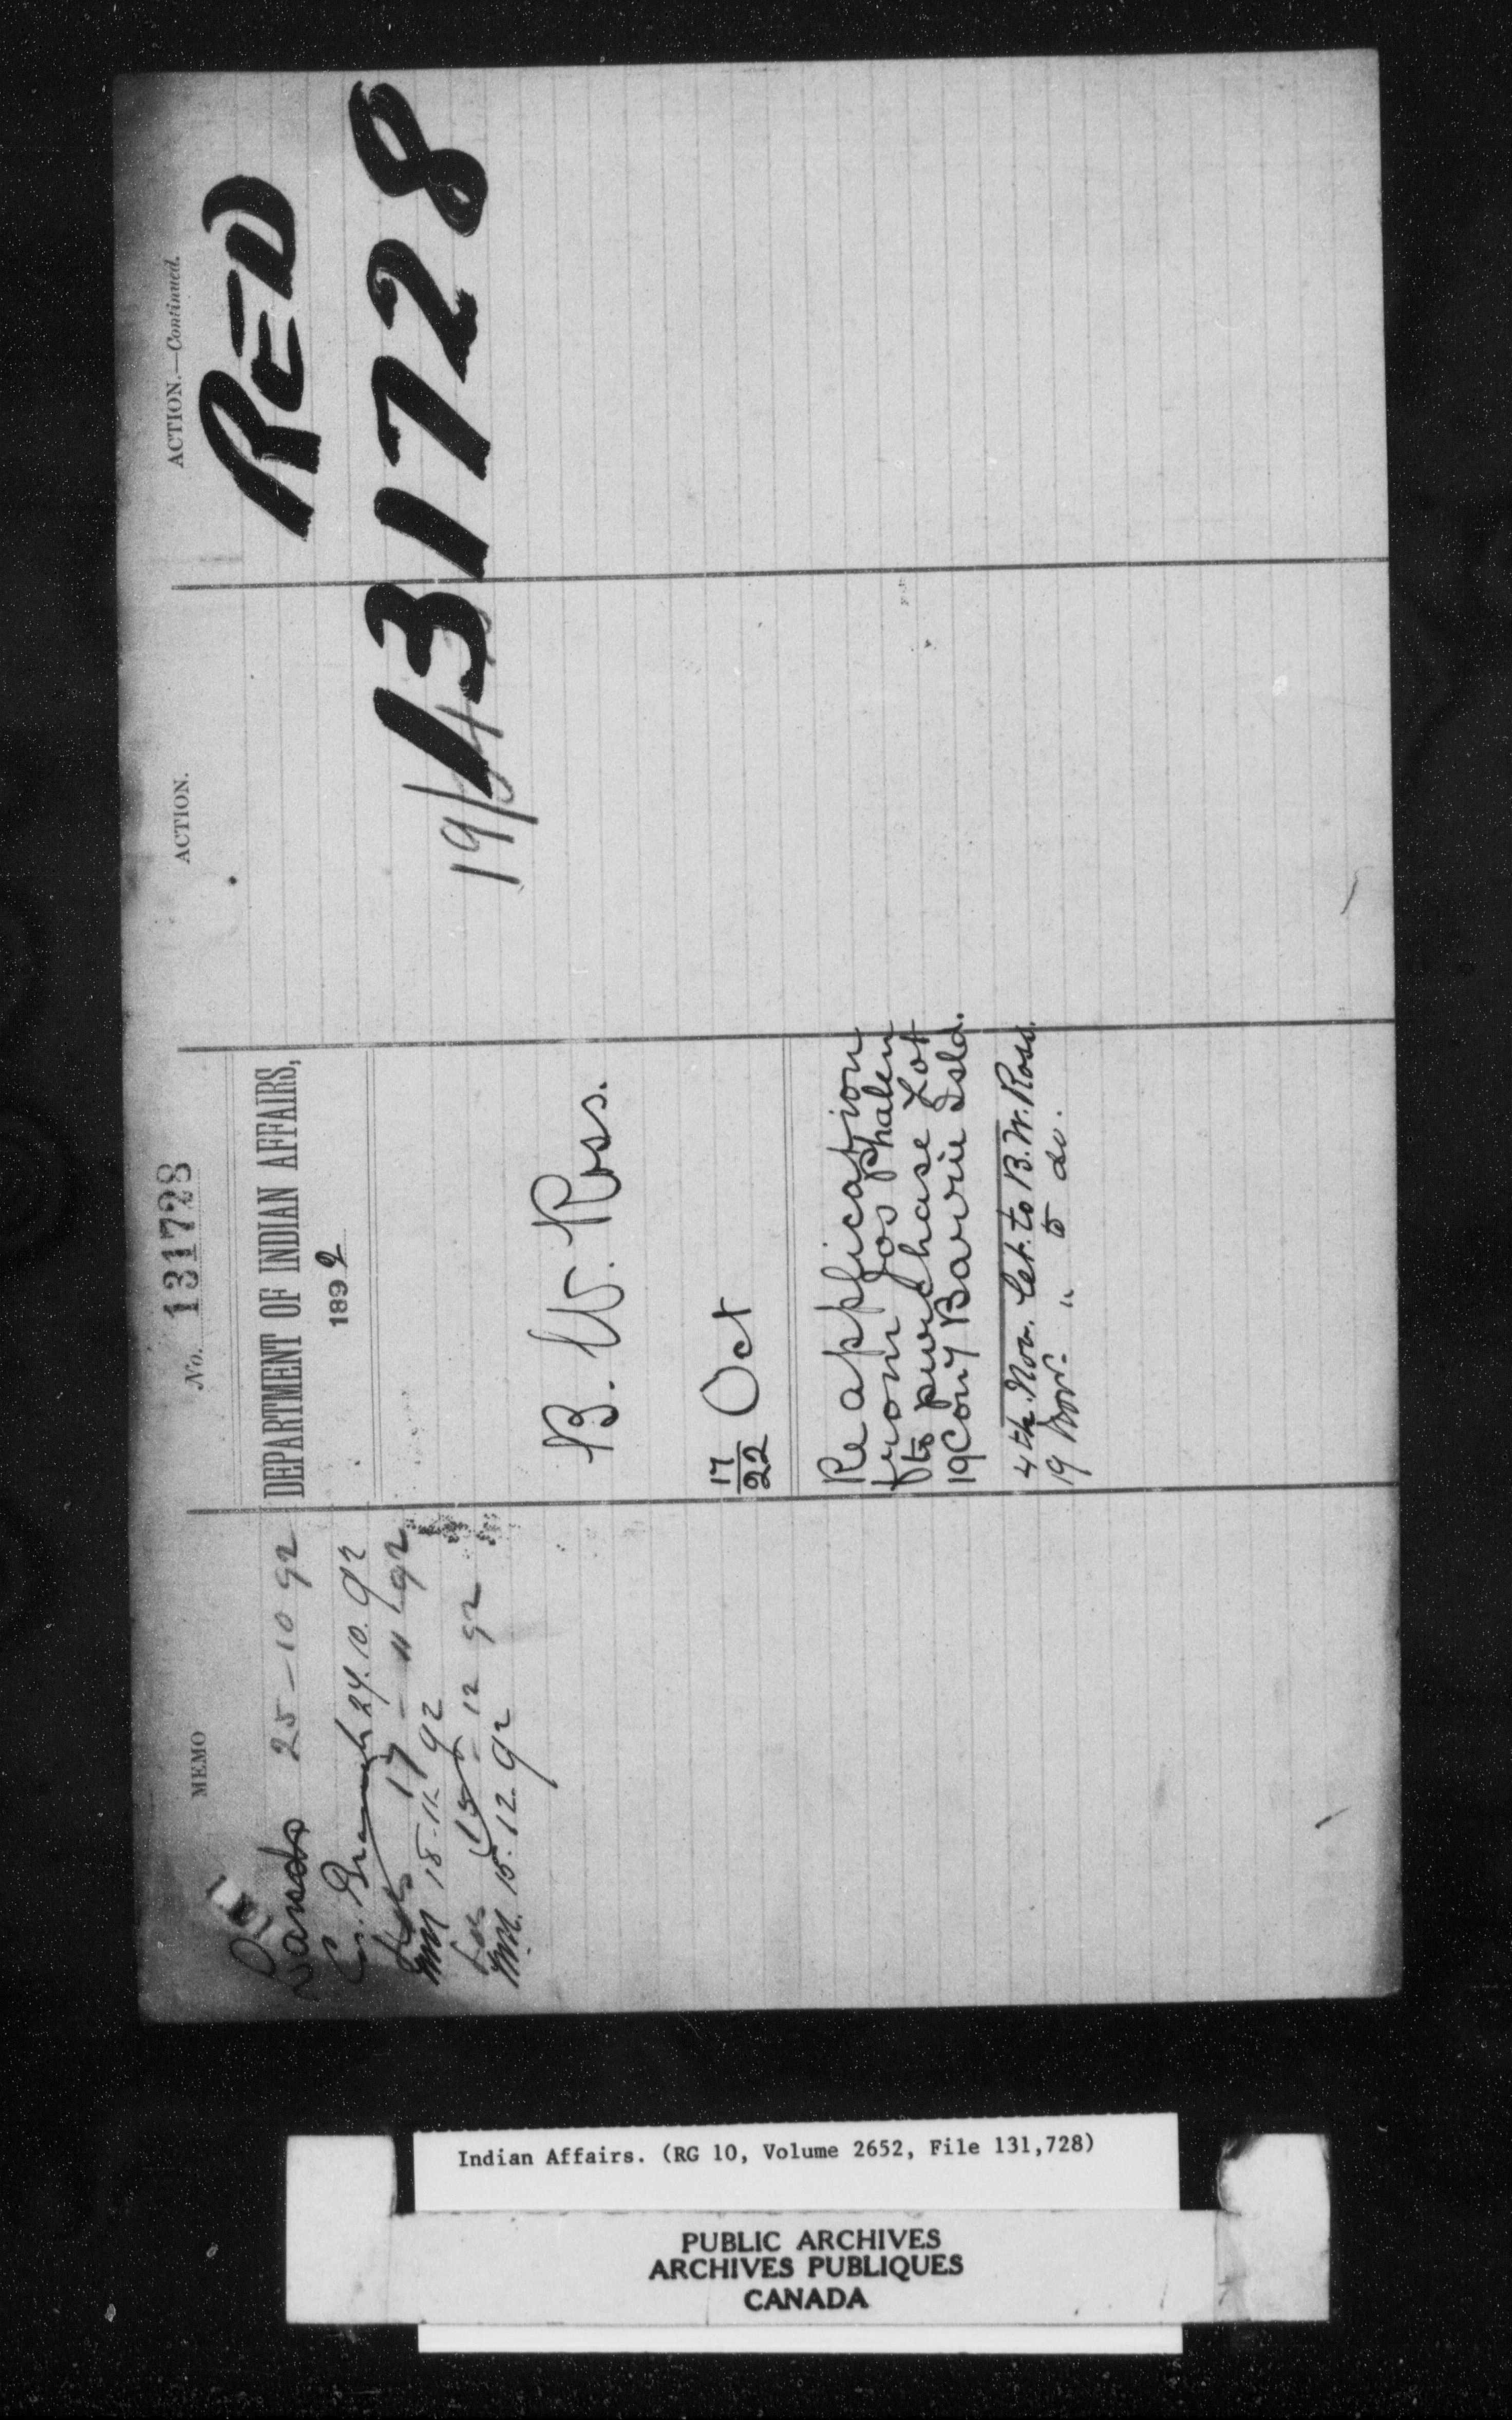 MEMO
Lands 25-10 92
C. Branch 27.10.92
17-11-92
18-11-92
15-12 92
15.12.92
No. 131728
DEPARTMENT OF INDIAN AFFAIRS,
1892
B. W. Ross.
17/22 Oct
Re application
from Jos Phalen
to purchase Lot
19 Con 7 Barrie Isld.
4th. Nov. Let. to B. W. Ross.
19 Nov. " to do.
ACTION.
19/
ACTION.—Continued.
RED
131728
Indian Affairs. (RG 10, Volume 2652, File 131,728)
PUBLIC ARCHIVES
ARCHIVES PUBLIQUES
CANADA